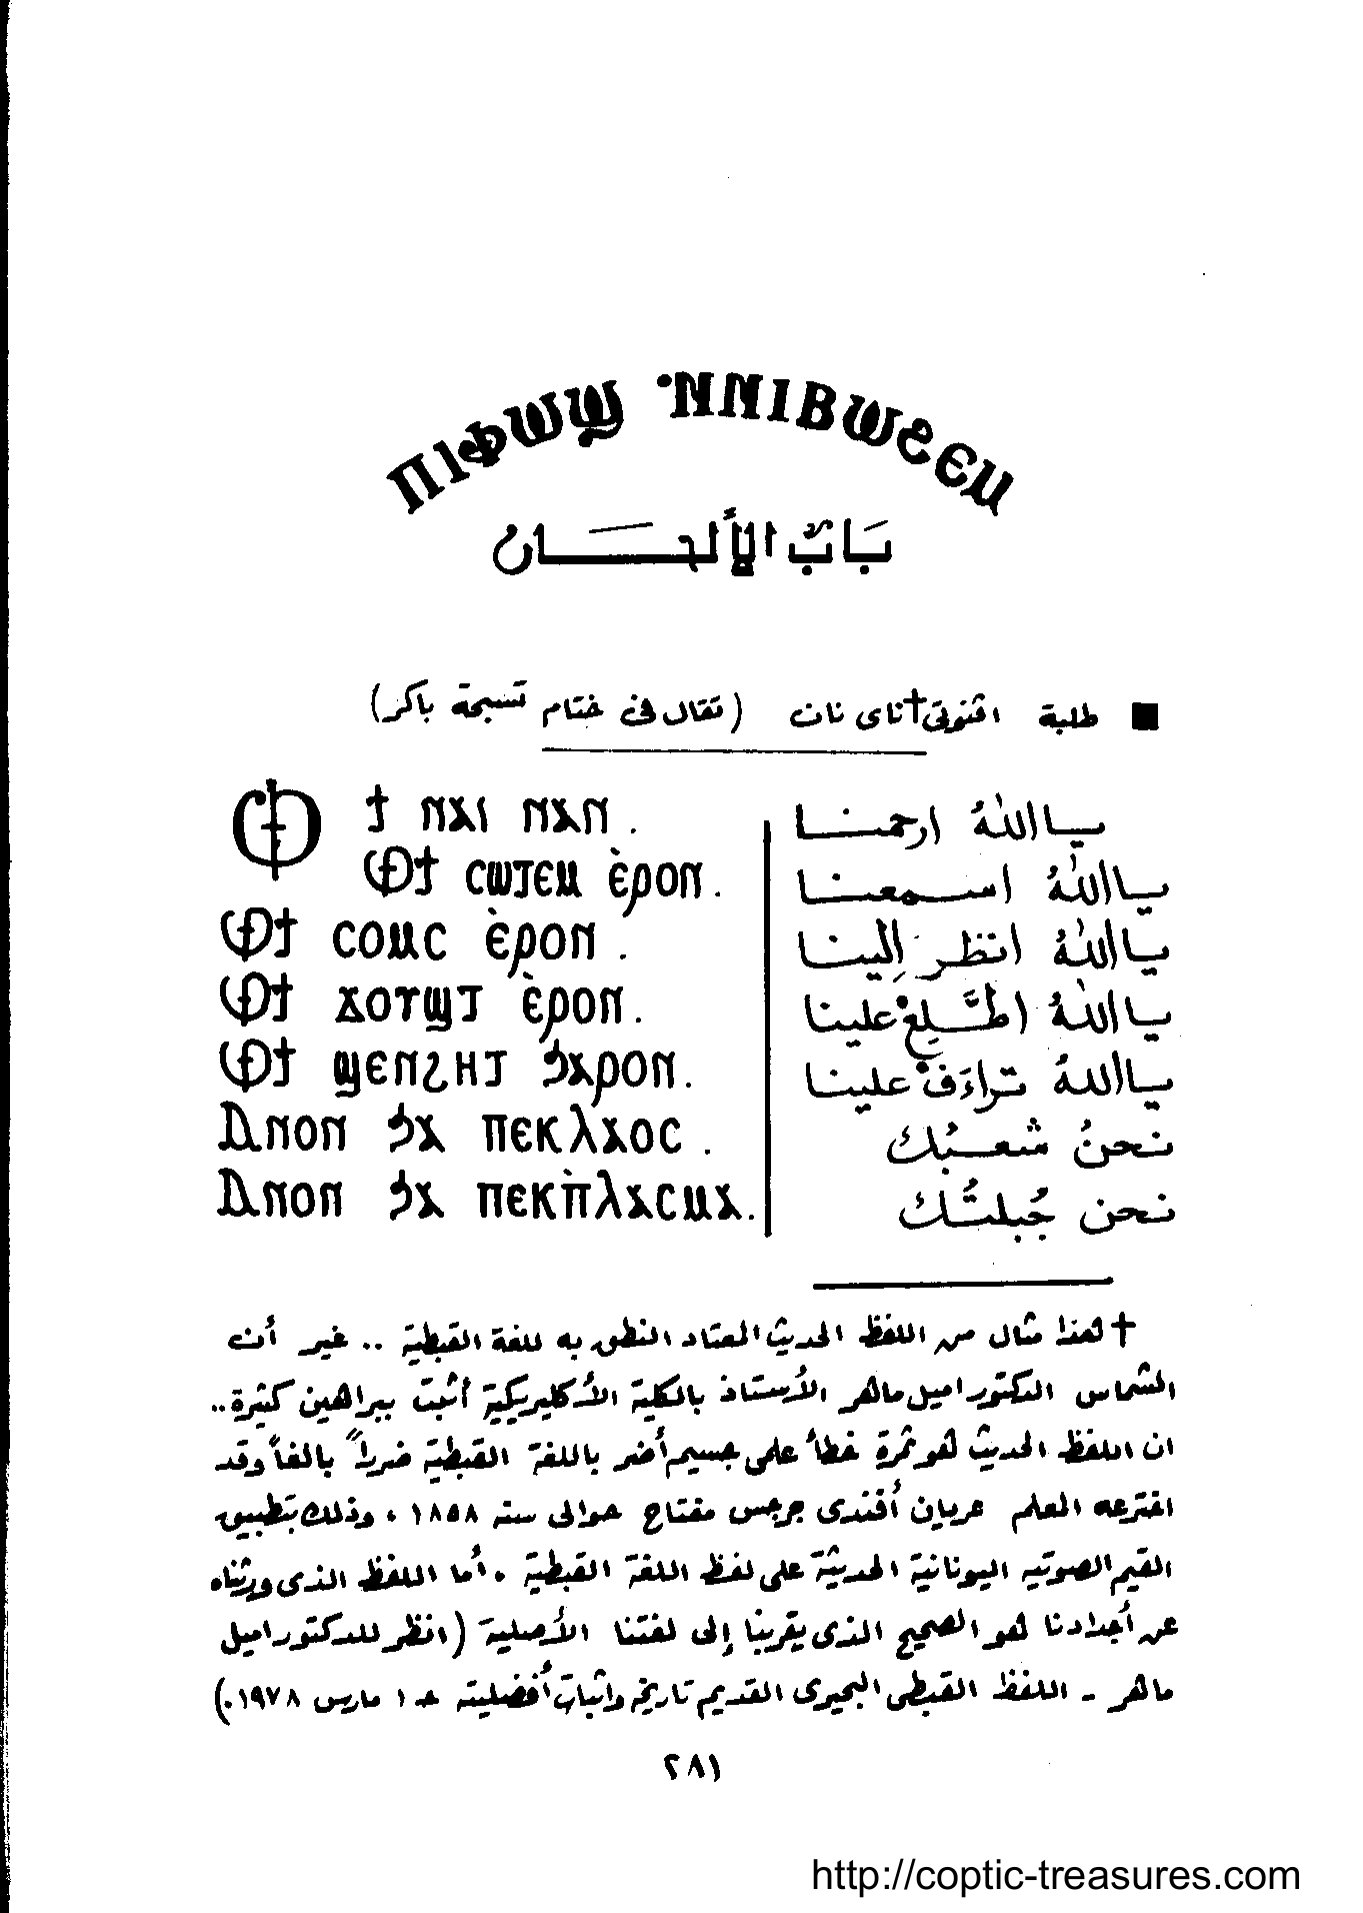 ⲡⲓⲫⲱϣ ̀ⲛⲛⲓⲃⲱϩⲉⲙ
بَابُ الألحـــان
■ طلبة افنوتى† ناى نان (تقال فى ختام تسبحة باكر)
Ⲫϯ ⲛⲁⲓ ⲛⲁⲛ .
يـا اللهُ ارحمنـا
Ⲫϯ ⲥⲱⲧⲉⲙ ⲉ̀ⲣⲟⲛ .
يـا اللهُ اسـمعنـا
Ⲫϯ ⲥⲟⲙⲥ ⲉ̀ⲣⲟⲛ .
يـا اللهُ انظر إلينـا
Ⲫϯ ϫⲟⲩϣⲧ ⲉ̀ⲣⲟⲛ .
يـا اللهُ اطَّـلِعْ علينا
Ⲫϯ ϣⲉⲛϩⲏⲧ ϧⲁⲣⲟⲛ .
يـا اللهُ تراءَفْ علينا
Ⲁⲛⲟⲛ ϧⲁ ⲡⲉⲕⲗⲁⲟⲥ .
نـحنُ شعـبُك
Ⲁⲛⲟⲛ ϧⲁ ⲡⲉⲕⲡ̀ⲗⲁⲥⲙⲁ .
نـحن جُبلتُـك
† هذا مثال من اللفظ الحديث المعتاد النطق به للغة القبطية .. غير أن
الشماس الدكتور اميل ماهر الأستاذ بالكلية الأكليريكية أثبت ببراهين كثيرة ..
ان اللفظ الحديث هو ثمرة خطأ علمى جسيم أضر باللغة القبطية ضرراً بالغاً وقد
اخترعه المعلم عريان أفندى جرجس مفتاح حوالى سنة ١٨٥٨ ، وذلك بتطبيق
القيم الصوتيه اليونانية الحديثة على لفظ اللغة القبطية . أما اللفظ الذى ورثناه
عن أجدادنا هو الصحيح الذى يقربنا إلى لغتنا الأصلية (انظر للدكتور اميل
ماهر - اللفظ القبطى البحيرى القديم تاريخه واثبات أفضليته حـ ١ مارس ١٩٧٨ .)
٢٨١
http://coptic-treasures.com